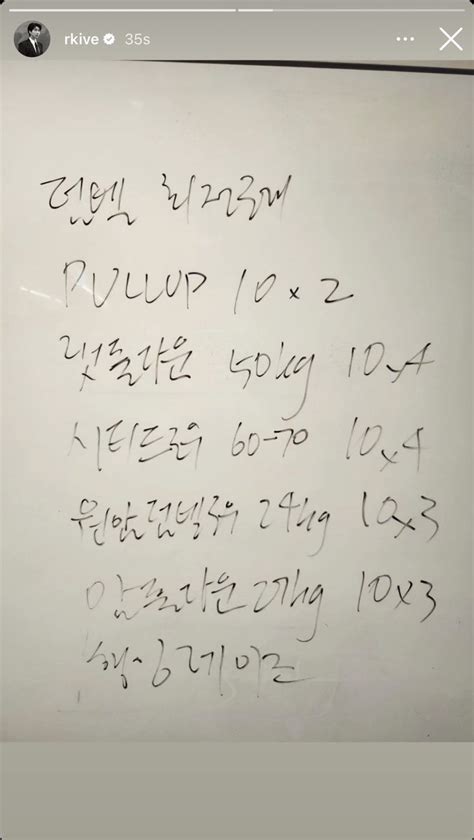 rkive 35s
덤벨 회전근개
PULLUP 10x2
랫풀다운 50kg 10x4
시티드로우 60-70 10x4
원암덤벨로우 24kg 10x3
암풀다운 27kg 10x3
행잉레이즈